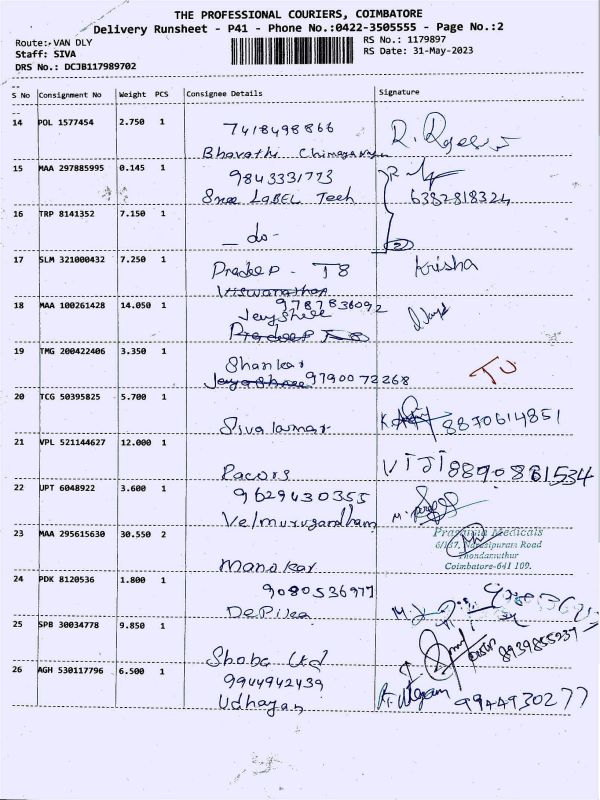 THE PROFESSIONAL COURIERS, COIMBATORE
Delivery Runsheet - P41 - Phone No.:0422-3505555 - Page No.:2
Route:- VAN DLY
RS No.: 1179897
Staff: SIVA
RS Date: 31-May-2023
DRS No.: DCJB117989702
S No Consignment No Weight PCS Consignee Details Signature
14 POL 1577454 2.750 1 7418498866
Bharathi
15 MAA 297885995 0.145 1 9843331773
Sree LABEL Tech 6382818324
16 TRP 8141352 7.150 1 - do -
17 SLM 321000432 7.250 1 Pradeep - T8 Krisha
Viswanathan
18 MAA 100261428 14.050 1 9787836092
Jeyshree
Pradeep T8
19 TMG 200422406 3.350 1 Shankar
Jeyashree 9790072268
20 TCG 50395825 5.700 1 Sivakumar 8870614851
21 VPL 521144627 12.000 1 Pacors VIJI 8890881534
22 UPT 6048922 3.600 1 9629430355
Velmurugandham
23 MAA 295615630 30.550 2 Manokar
Prathima Medicals
6/137, Narasipuram Road
Thondamuthur
Coimbatore-641 109.
24 PDK 8120536 1.800 1 9080536977
Depika
25 SPB 30034778 9.850 1 Shobe Ltd 8939855937
26 AGH 530117796 6.500 1 9944942439
Udhayan 9944930277